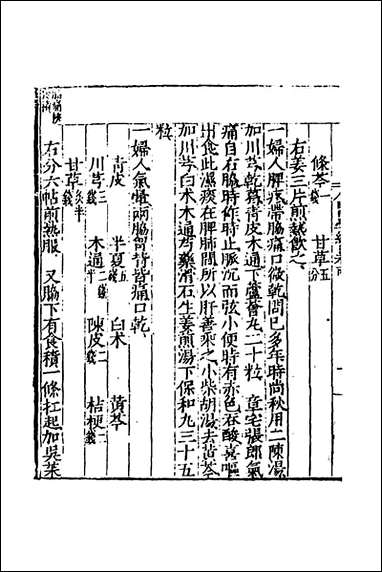 條芩一錢 甘草五分
右姜三片煎熱飲之
一婦人脾疼帶脇痛口微乾問已多年時尚秋用二陳湯
加川芎乾葛青皮木通下蘆薈丸二十粒 章宅張郎氣
痛自右脇時作時止脈沉而弦小便時有赤色吞酸喜嘔
出食此濕痰在脾肺間所以肝善乘之小柴胡湯去黃芩
加川芎白朮木通芍藥滑石生姜煎湯下保和丸三十五
粒
一婦人氣喘兩脇胷背皆痛口乾
青皮 半夏五錢 白朮 黃芩
川芎三錢 木通二錢半 陳皮二 桔梗二錢
甘草炙半錢
右分六帖煎熱服 又脇下有食積一條杠起加吳茱